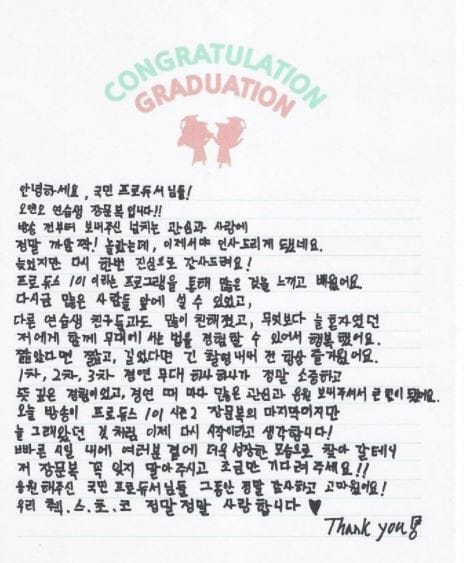 CONGRATULATION
GRADUATION
안녕하세요, 국민 프로듀서님들!
오앤오 연습생 장문복입니다!!
방송 전부터 보내주신 넘치는 관심과 사랑에
정말 까암짝! 놀랐는데, 이제서야 인사드리게 됐네요.
늦었지만 다시 한번 진심으로 감사드려요!
프로듀스 101 이라는 프로그램을 통해 많은 것을 느끼고 배웠어요.
다시금 많은 사람들 앞에 설 수 있었고,
다른 연습생 친구들과도 많이 친해졌고, 무엇보다 늘 혼자였던
저에게 함께 무대에 서는 법을 경험할 수 있어서 행복했어요.
짧았다면 짧고, 길었다면 긴 촬영내내 전 참 즐거웠어요.
1차, 2차, 3차 경연 무대 하나 하나가 정말 소중하고
뜻 깊은 경험이었고, 경연 때 마다 많은 관심과 응원 보내주셔서 큰 힘이 됐어요.
오늘 방송이 프로듀스 101 시즌2 장문복의 마지막이지만
늘 그래왔던 것 처럼 이제 다시 시작이라고 생각합니다!
빠른 시일 내에 여러분 곁에 더욱 성장한 모습으로 찾아 갈테니
저 장문복 꼭 잊지 말아주시고 조금만 기다려주세요!!
응원해주신 국민 프로듀서님들 그동안 정말 감사하고 고마웠어요!
우리 췍.스.초.코 정말정말 사랑합니다 ♥
Thank you